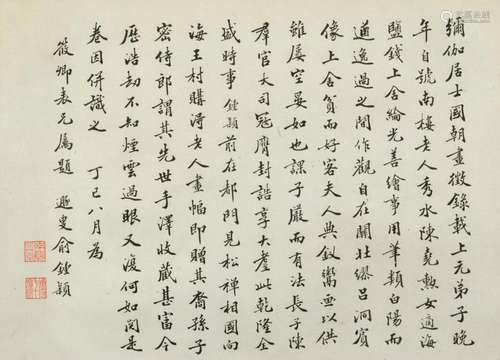 彌伽居士國朝畫徵錄載上元弟子晚
年自號南樓老人秀水陳堯勳女適海
鹽錢上舍綸光善繪事用筆類白陽而
遒逸過之間作觀自在關壯繆呂洞賓
像上舍貧而好客夫人典釵鬻画以供
雖屢空晏如也課子嚴而有法長子陳
羣官大司寇膺封誥享大耋此乾隆全
盛時事鍾穎前在都門見松禪相國向
海王村購淂老人畫幅即贈其裔孫子
密侍郎謂其先世手澤收藏甚富今
歷浩劫不知煙雲過眼又復何如閱是
卷因併識之 丁巳八月為
筱卿表兄属題 遯叟俞鍾穎